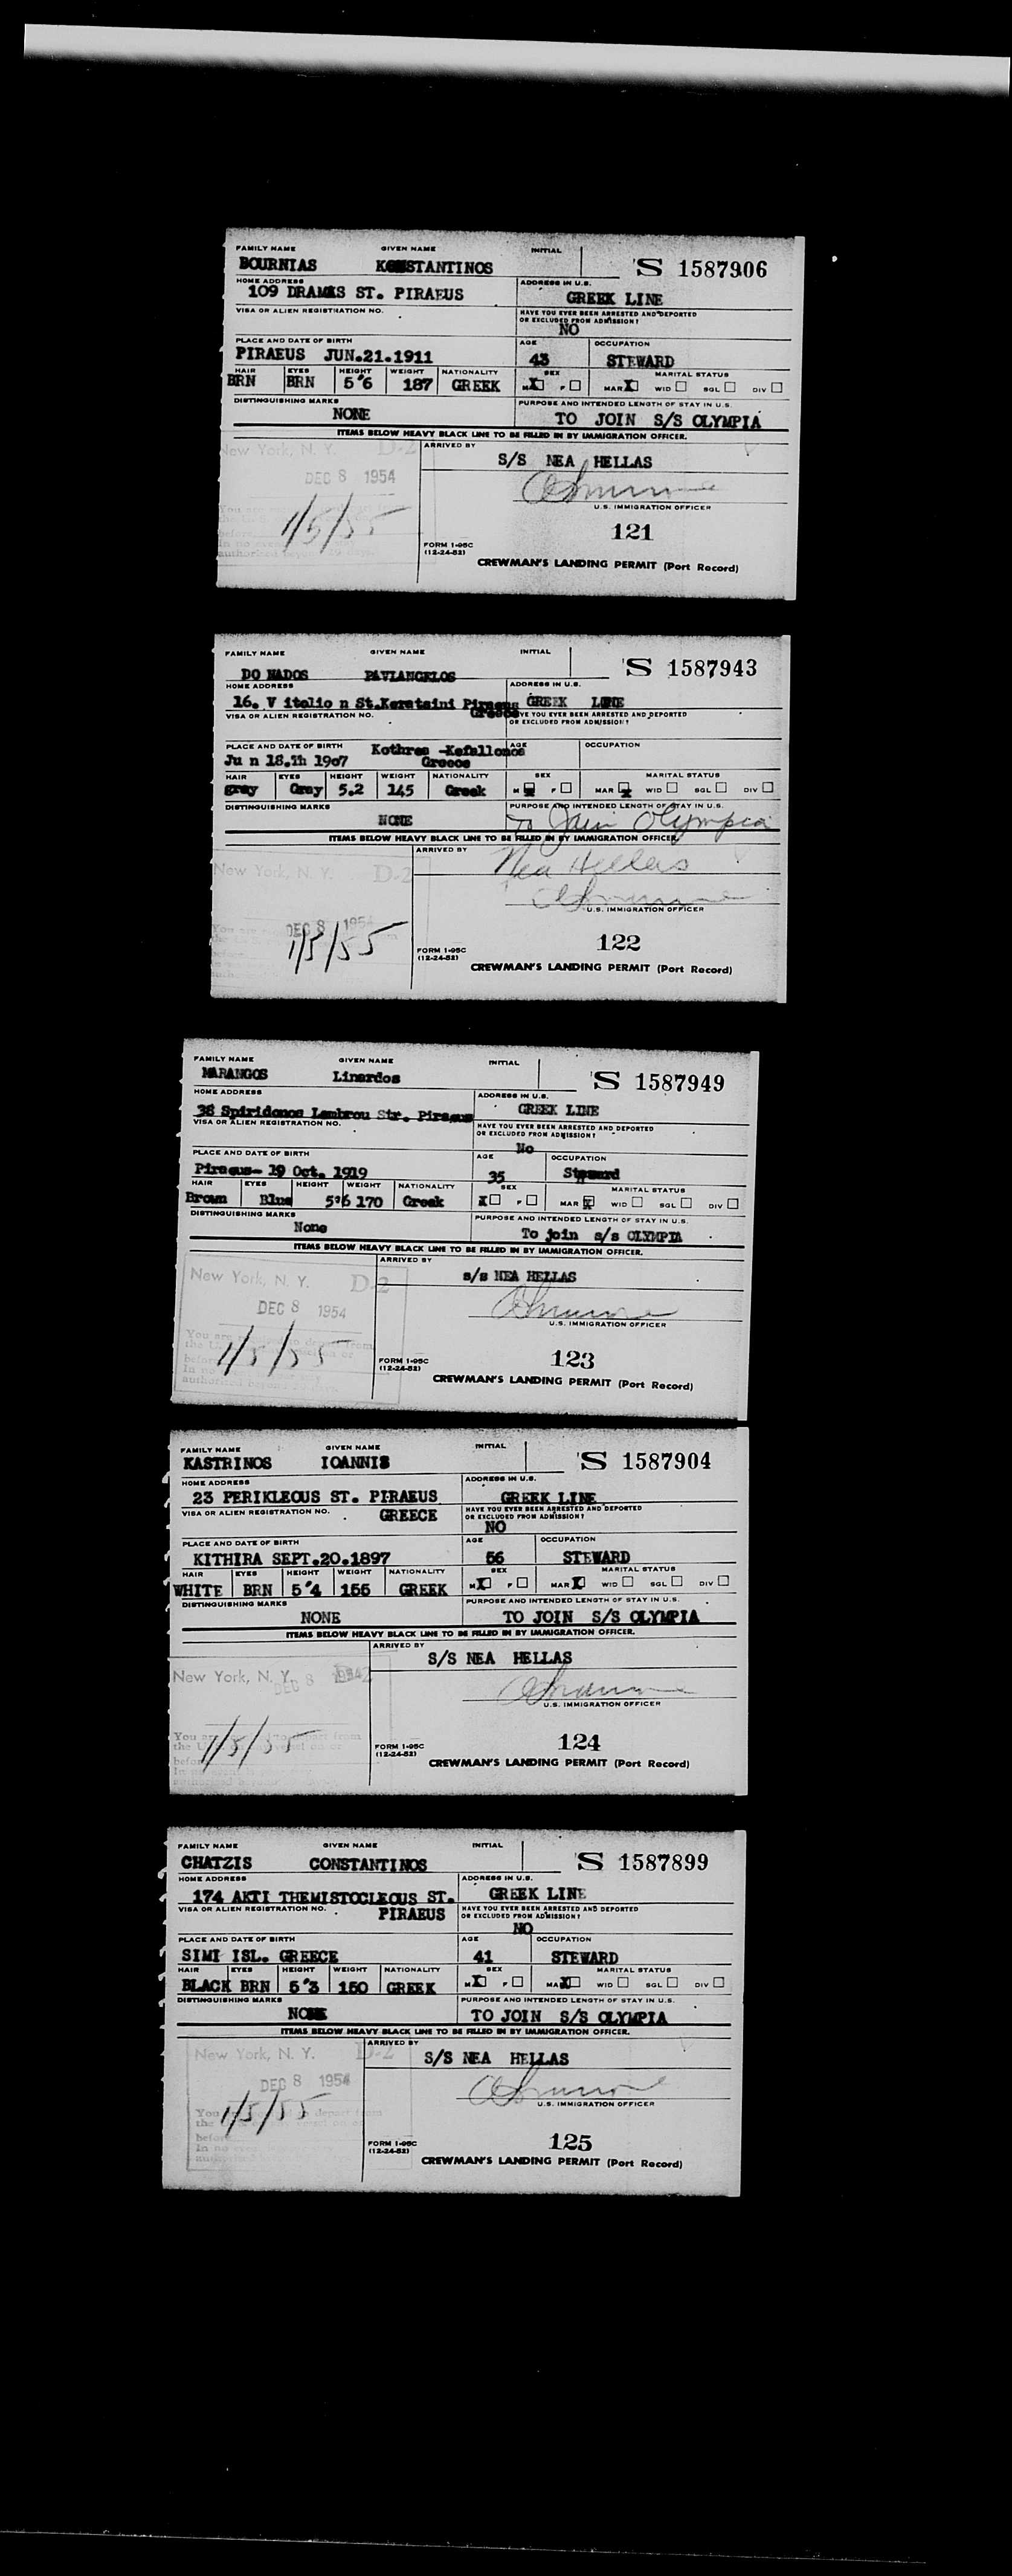 FAMILY NAME GIVEN NAME INITIAL
BOURNIAS KONSTANTINOS S 1587906
HOME ADDRESS ADDRESS IN U.S.
109 DRAMAS ST. PIRAEUS GREEK LINE
VISA OR ALIEN REGISTRATION NO. HAVE YOU EVER BEEN ARRESTED AND DEPORTED
OR EXCLUDED FROM ADMISSION?
NO
PLACE AND DATE OF BIRTH AGE OCCUPATION
PIRAEUS JUN.21.1911 43 STEWARD
HAIR EYES HEIGHT WEIGHT NATIONALITY SEX MARITAL STATUS
BRN BRN 5'6 187 GREEK M X F MAR X WID SGL DIV
DISTINGUISHING MARKS PURPOSE AND INTENDED LENGTH OF STAY IN U.S.
NONE TO JOIN S/S OLYMPIA
ITEMS BELOW HEAVY BLACK LINE TO BE FILLED IN BY IMMIGRATION OFFICER.
New York, N. Y. D-2 ARRIVED BY
S/S NEA HELLAS
DEC 8 1954
U.S. IMMIGRATION OFFICER
1/5/55
121
FORM I-95C
(12-24-52)
CREWMAN'S LANDING PERMIT (Port Record)
FAMILY NAME GIVEN NAME INITIAL
DO NADOS PAVLANGELOS S 1587943
HOME ADDRESS ADDRESS IN U.S.
16. V italio n St.Keratsini Piraeus GREEK LINE
Greece
VISA OR ALIEN REGISTRATION NO. HAVE YOU EVER BEEN ARRESTED AND DEPORTED
OR EXCLUDED FROM ADMISSION?
PLACE AND DATE OF BIRTH Kothrea -Kefallonos AGE OCCUPATION
Ju n 18.Th 1907 Greece
HAIR EYES HEIGHT WEIGHT NATIONALITY SEX MARITAL STATUS
gray Gray 5.2 145 Greek M F MAR WID SGL DIV
DISTINGUISHING MARKS PURPOSE AND INTENDED LENGTH OF STAY IN U.S.
NONE To Join Olympia
ITEMS BELOW HEAVY BLACK LINE TO BE FILLED IN BY IMMIGRATION OFFICER.
ARRIVED BY
New York, N. Y. D-2 Nea Hellas
U.S. IMMIGRATION OFFICER
DEC 8 1954
1/5/55
122
FORM I-95C
(12-24-52)
CREWMAN'S LANDING PERMIT (Port Record)
FAMILY NAME GIVEN NAME INITIAL
MARANGOS Linardos S 1587949
HOME ADDRESS ADDRESS IN U.S.
38 Spiridonos Lambrou Str. Piraeus GREEK LINE
VISA OR ALIEN REGISTRATION NO. HAVE YOU EVER BEEN ARRESTED AND DEPORTED
OR EXCLUDED FROM ADMISSION?
No
PLACE AND DATE OF BIRTH AGE OCCUPATION
Piraeus- 19 Oct. 1919 35 Steward
HAIR EYES HEIGHT WEIGHT NATIONALITY SEX MARITAL STATUS
Brown Blue 5'6 170 Greek X F MAR X WID SGL DIV
DISTINGUISHING MARKS PURPOSE AND INTENDED LENGTH OF STAY IN U.S.
None To join s/s OLYMPIA
ITEMS BELOW HEAVY BLACK LINE TO BE FILLED IN BY IMMIGRATION OFFICER.
ARRIVED BY
New York, N. Y. D-2 s/s NEA HELLAS
DEC 8 1954
U.S. IMMIGRATION OFFICER
1/5/55
123
FORM I-95C
(12-24-52)
CREWMAN'S LANDING PERMIT (Port Record)
FAMILY NAME GIVEN NAME INITIAL
KASTRINOS IOANNIS S 1587904
HOME ADDRESS ADDRESS IN U.S.
23 PERIKLEOUS ST. PIRAEUS GREEK LINE
VISA OR ALIEN REGISTRATION NO. GREECE HAVE YOU EVER BEEN ARRESTED AND DEPORTED
OR EXCLUDED FROM ADMISSION?
NO
PLACE AND DATE OF BIRTH AGE OCCUPATION
KITHIRA SEPT.20.1897 56 STEWARD
HAIR EYES HEIGHT WEIGHT NATIONALITY SEX MARITAL STATUS
WHITE BRN 5'4 155 GREEK M X F MAR X WID SGL DIV
DISTINGUISHING MARKS PURPOSE AND INTENDED LENGTH OF STAY IN U.S.
NONE TO JOIN S/S OLYMPIA
ITEMS BELOW HEAVY BLACK LINE TO BE FILLED IN BY IMMIGRATION OFFICER.
ARRIVED BY
S/S NEA HELLAS
New York, N. Y. D-2
DEC 8 1954
U.S. IMMIGRATION OFFICER
1/5/55
124
FORM I-95C
(12-24-52)
CREWMAN'S LANDING PERMIT (Port Record)
FAMILY NAME GIVEN NAME INITIAL
CHATZIS CONSTANTINOS S 1587899
HOME ADDRESS ADDRESS IN U.S.
174 AKTI THEMISTOCLEOUS ST. GREEK LINE
VISA OR ALIEN REGISTRATION NO. PIRAEUS HAVE YOU EVER BEEN ARRESTED AND DEPORTED
OR EXCLUDED FROM ADMISSION?
NO
PLACE AND DATE OF BIRTH AGE OCCUPATION
SIMI ISL. GREECE 41 STEWARD
HAIR EYES HEIGHT WEIGHT NATIONALITY SEX MARITAL STATUS
BLACK BRN 5'3 150 GREEK M X F MAR X WID SGL DIV
DISTINGUISHING MARKS PURPOSE AND INTENDED LENGTH OF STAY IN U.S.
NONE TO JOIN S/S OLYMPIA
ITEMS BELOW HEAVY BLACK LINE TO BE FILLED IN BY IMMIGRATION OFFICER.
ARRIVED BY
New York, N. Y. D-2 S/S NEA HELLAS
DEC 8 1954
U.S. IMMIGRATION OFFICER
1/5/55
125
FORM I-95C
(12-24-52)
CREWMAN'S LANDING PERMIT (Port Record)